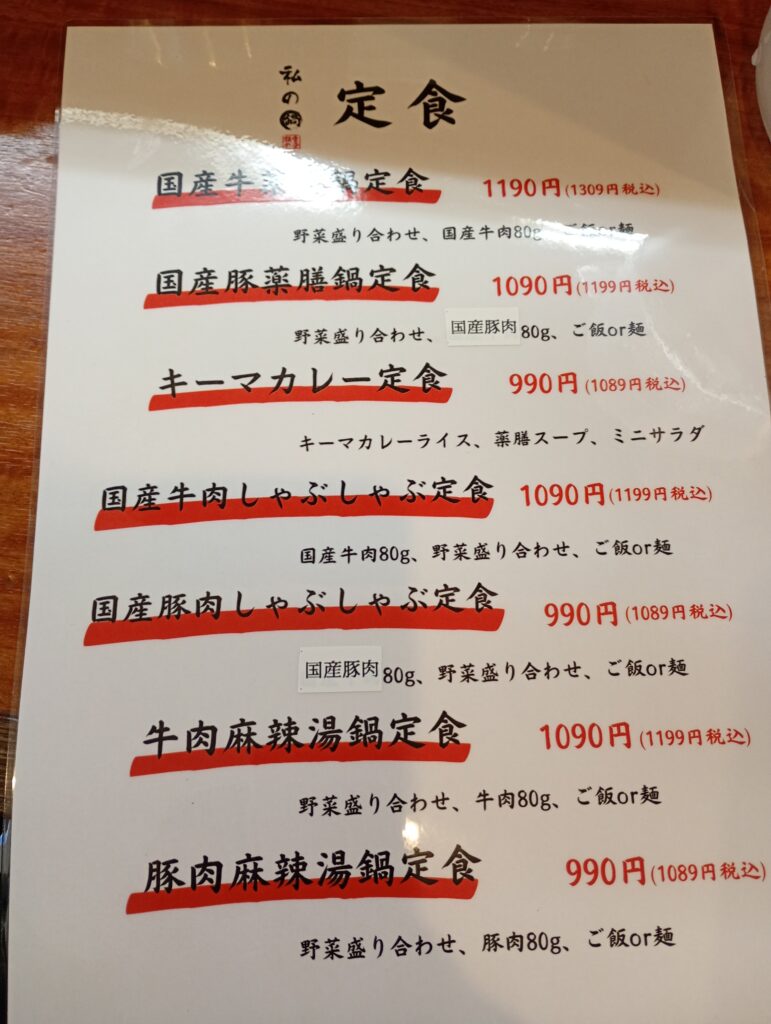 私の鍋
定食
国産牛薬膳鍋定食 1190円(1309円税込)
野菜盛り合わせ、国産牛肉80g、ご飯or麺
国産豚薬膳鍋定食 1090円(1199円税込)
野菜盛り合わせ、国産豚肉80g、ご飯or麺
キーマカレー定食 990円(1089円税込)
キーマカレーライス、薬膳スープ、ミニサラダ
国産牛肉しゃぶしゃぶ定食 1090円(1199円税込)
国産牛肉80g、野菜盛り合わせ、ご飯or麺
国産豚肉しゃぶしゃぶ定食 990円(1089円税込)
国産豚肉80g、野菜盛り合わせ、ご飯or麺
牛肉麻辣湯鍋定食 1090円(1199円税込)
野菜盛り合わせ、牛肉80g、ご飯or麺
豚肉麻辣湯鍋定食 990円(1089円税込)
野菜盛り合わせ、豚肉80g、ご飯or麺